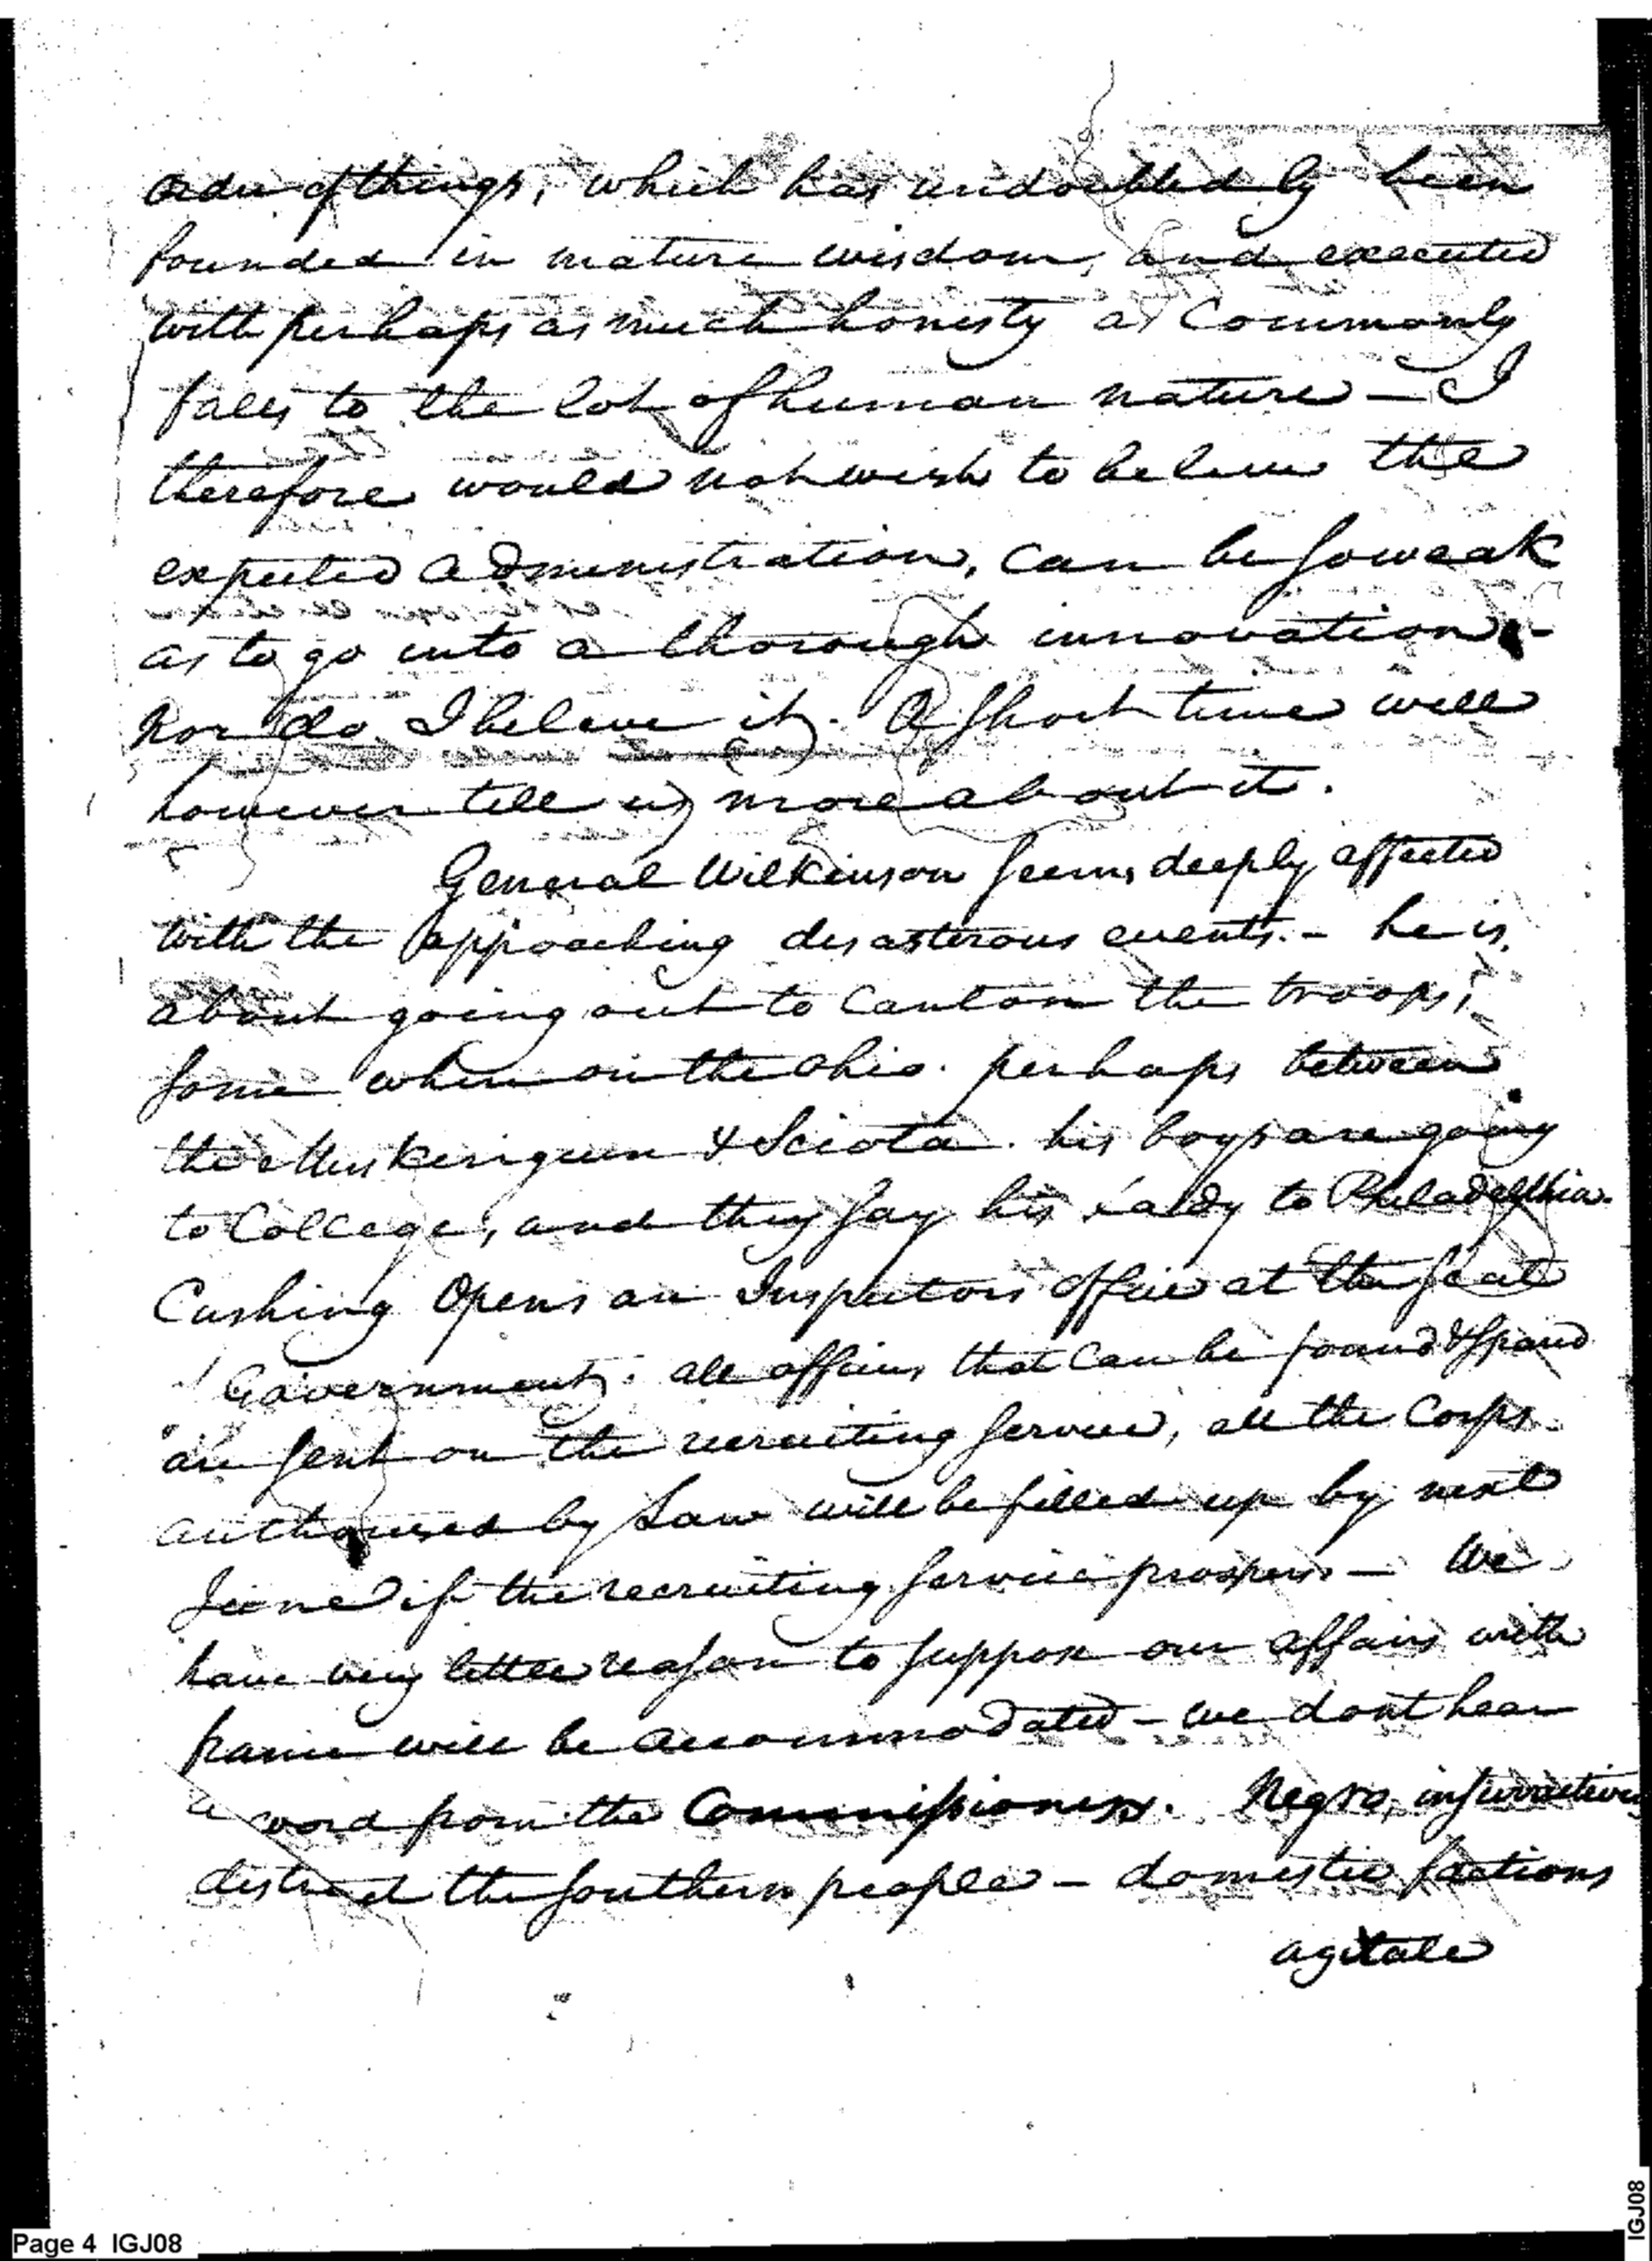 order of things, which has undoubtedly been
founded in mature wisdom, and executed
with perhaps as much honesty as Commonly
falls to the lot of human nature — I
therefore would not wish to beleive the
expected administration, can be so weak
as to go into a thorough innovation -
Nor do I beleive it. A short time will
however tell us more about it.
General Wilkinson seems deeply affected
with the approaching desasterous events. - he is
about going out to Canton the troops,
some where on the Ohio. perhaps between
the Muskingum & Sciota. his boys are going
to College, and they say his Lady to Philadelphia.
Cushing Opens an Inspectors office at the seat
of Government. all officers that can be found & spared
are sent on the recruiting service, all the Corps
authorised by Law will be filled up by next
June if the recruiting service prospers — We
have very little reason to suppose our affairs with
france will be accommodated - we dont hear
a word from the Commissioners. Negro insurrections
distract the southern people - domestic factions
agitate
Page 4 IGJ08
IGJ08